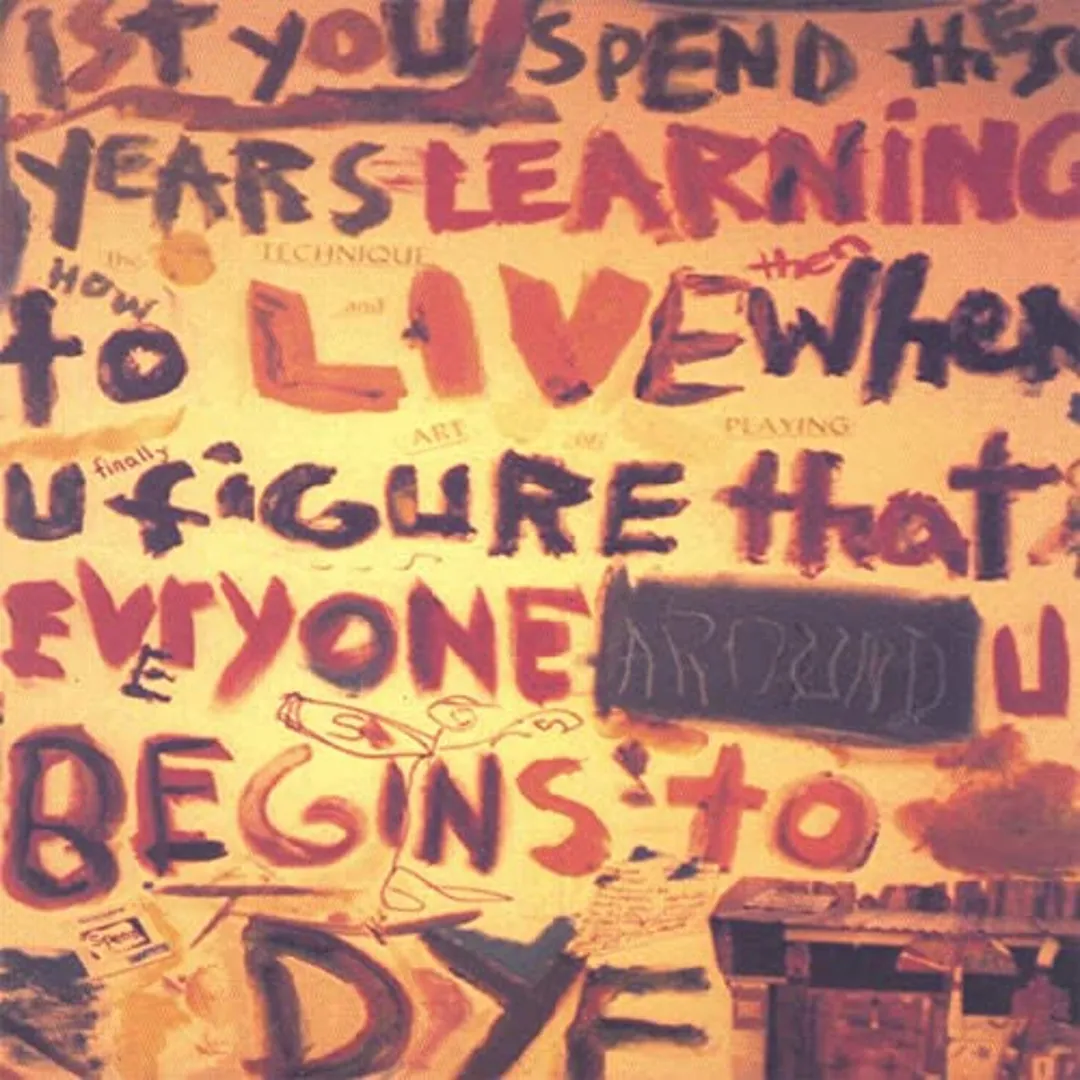 1ST YOU SPEND thESe
YEARS LEARNiNG
the TECHNIQUE
then
HOW
and
to LIVE When
ART OF PLAYING
finally
U fiGURE that
EVrYONE AROUND U
E
BEGINS to
Spend
DYE